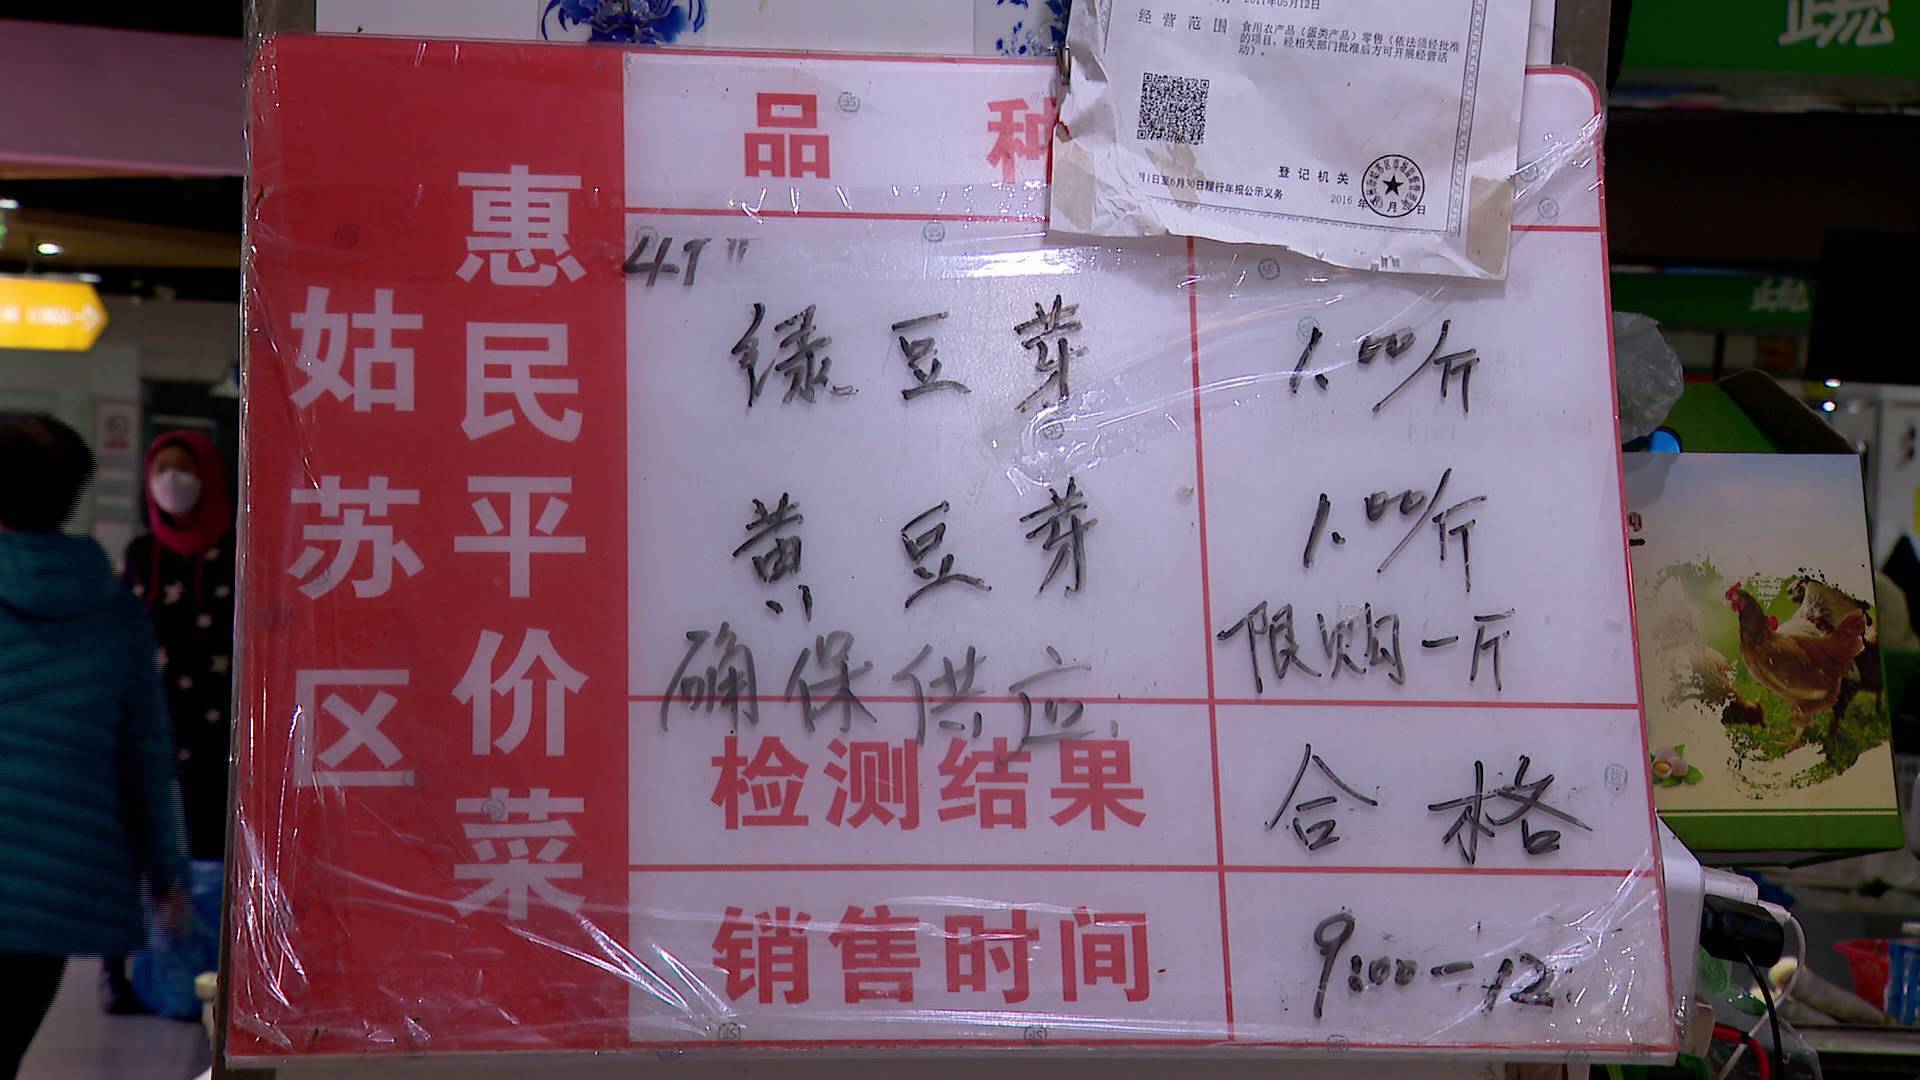 姑苏区
惠民平价菜
品 种
41"
绿豆芽 1.00/斤
黄豆芽 1.00/斤
确保供应 限购一斤
检测结果 合格
销售时间 9:00-12:
2011年05月12日
经营范围 食用农产品（蛋类产品）零售（依法须经批准
的项目，经相关部门批准后方可开展经营活
动）。
登记机关
月1日至6月30日履行年报公示义务
2016 年 月 日
蔬
蔬